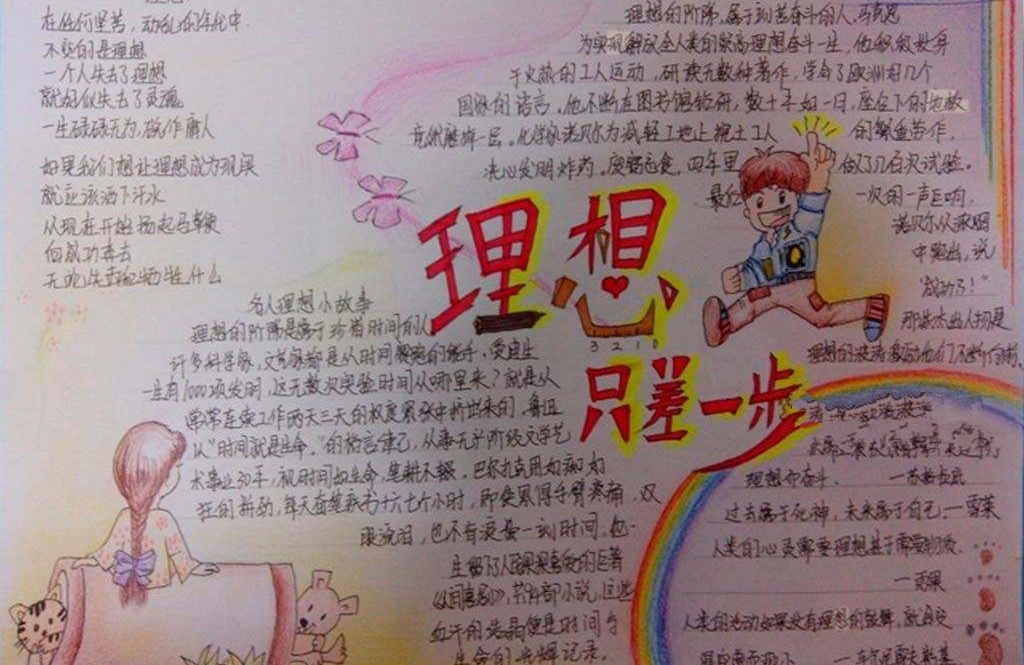 理想
在任何里苦，动乱的年代中.
不变的是理想
一个人失去了理想
就好似失去了灵魂
一生碌碌无为，做作庸人
如果我们想让理想成为现实
就应该洒下汗水
从现在开始扬起马鞭
向成功奔去
无论失去牺牲什么
名人理想小故事
理想的阶梯是属于珍惜时间的人
许多科学家，文学家都是从时间的能手。爱迪生
一生有1000项发明，这无数次实验时间从哪里来？就是从
常常连续工作两天三天的极度紧张中挤出来的，鲁迅
以"时间就是生命。"的格言律己，从事无产阶级文学艺
术事业30年，视时间如生命，笔耕不辍。巴尔扎克用如痴如
狂的拼劲，每天奋笔疾书十六七个小时，即使累得手臂疼痛，双
眼流泪，也不有浪费一刻时间。他一
生留下了人喜爱的巨著
《人间喜剧》，共部小说，这些
血汗的结晶便是时间与
生命的光辉记录。
理想的阶梯，属于刻苦奋斗的人，马克思
为实现解放全人类的崇高理想奋斗一生，他积极投身
于火热的工人运动，研读无数种著作，学会了欧洲好几个
国家的语言。他不断在图书馆钻研，数十年如一日，座位下的地板
竟然磨掉一层。化学家诺贝尔为减轻工地上挖土工人的繁重劳作，
决心发明炸药。废寝忘食。四年里做了几百次试验。
最后一次的一声巨响，
诺贝尔从浓烟
中跑出，说
"成功了！"
那些杰出人物是
理想的激动他们不断向前。
理想
只差一步
3 2 1 0
理想而奋斗. ——苏格拉底
过去属于死神，未来属于自己.—雪莱
人类的心灵需要理想甚于需要物质.
—雨果
人类的活动如果没有理想的鼓舞，就会变